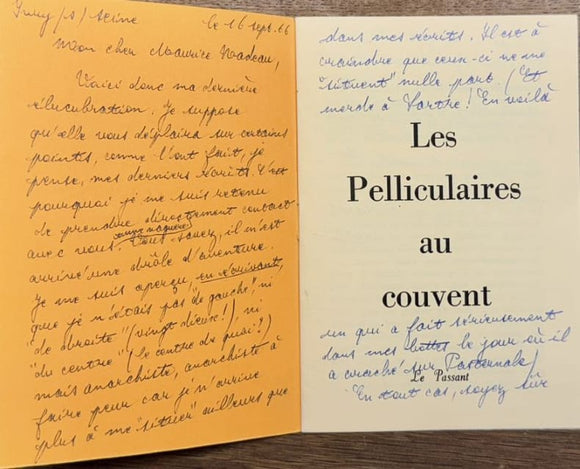 Ivry (s) Seine
le 16 sept. 66
Mon cher Maurice Nadeau,
Voici donc ma dernière
élucubration. Je suppose
qu'elle vous déplaira sur certains
points, comme l'ont fait, je
pense, mes derniers écrits. C'est
pourquoi je me suis retenu
de prendre directement contact
avec vous. Vous savez, il m'est
arrivé une drôle d'aventure.
Je me suis aperçu, en écrivant,
que je n'étais pas "de gauche" ni
"de droite" (vingt dieux!) ni
"du centre" (le centre de quoi?)
mais anarchiste, anarchiste à
faire peur car je n'arrive
plus à me "situer" ailleurs que
dans mes écrits. Il est à
craindre que ceux-ci ne me
"situent" nulle part. (Et
merde à Sartre! En voilà
Les
Pelliculaires
au
couvent
un qui a fait sérieusement
dans mes bottes le jour où il
a craché sur Pasternak)
Le Passant
En tout cas, soyez sûr